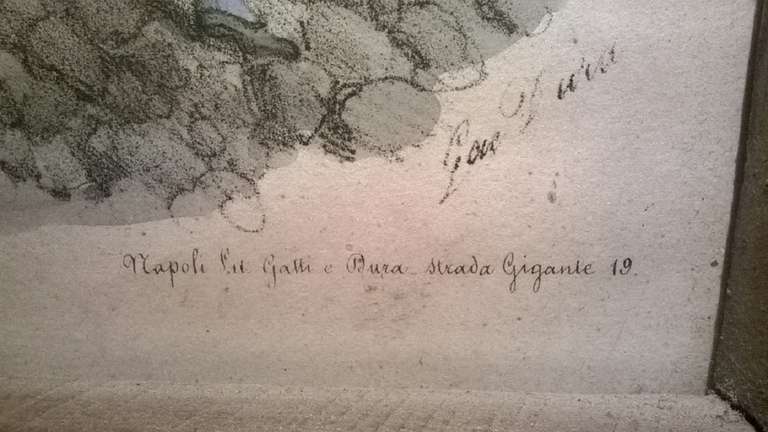 Gae Dura
Napoli Lit Gatti e Dura strada Gigante 19.